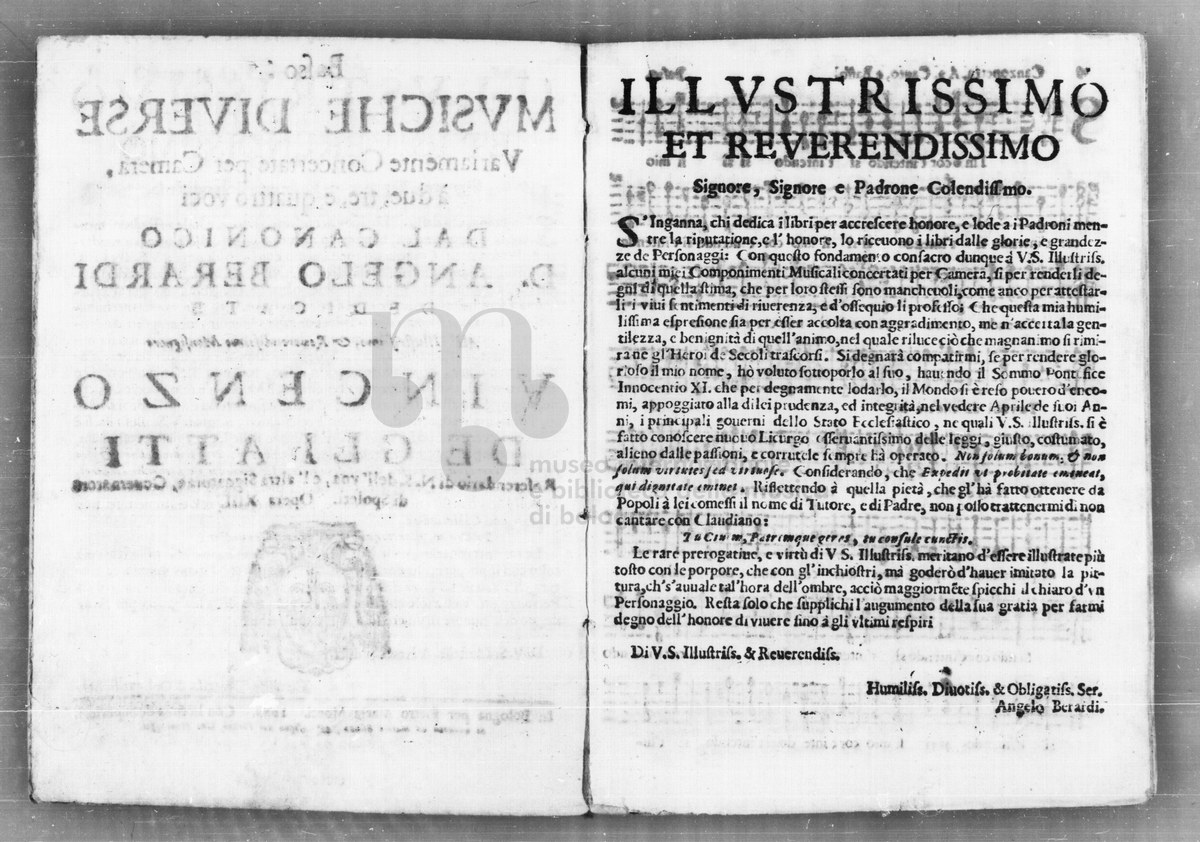 ILLVSTRISSIMO
ET REVERENDISSIMO
Signore, Signore e Padrone Colendissimo.
S'Inganna, chi dedica i libri per accrescere honore, e lode a i Padroni men-
tre la riputatione, e l'honore, lo riceuono i libri dalle glorie, e grandez-
ze de Personaggi: Con questo fondamento consacro dunque à V.S. Illustriss.
alcuni miei Componimenti Musicali concertati per Camera, si per renderli de-
gni di quella stima, che per loro stessi sono mancheuoli, come anco per attestar-
li i viui sentimenti di riuerenza, e d'ossequio li professo: Che questa mia humi-
lissima espresione sia per esser accolta con aggradimento, me n'accerta la gen-
tilezza, e benignità di quell'animo, nel quale riluce ciò che magnanimo si rimi-
ra nè gl'Heroi de Secoli trascorsi. Si degnarà compatirmi, se per rendere glo-
rioso il mio nome, hò voluto sottoporlo al suo, hauendo il Sommo Pontefice
Innocentio XI. che per degnamente lodarlo, il Mondo si è reso pouero d'enco-
mi, appoggiato alla di lei prudenza, ed integrità, nel vedere Aprile de suoi An-
ni, i principali gouerni dello Stato Ecclesiastico, ne quali V.S. Illustriss. si è
fatto conoscere nuouo Licurgo osseruantissimo delle leggi, giusto, costumato,
alieno dalle passioni, e corrutele sempre hà operato. Non solum bonum, & non
solum virtutes sed virtuose. Considerando, che Expedit vt probitate emineat,
qui dignitate eminet. Riflettendo à quella pietà, che gl'hà fatto ottenere da
Popoli à lei comessi il nome di Tutore, e di Padre, non posso trattenermi di non
cantare con Claudiano:
Tu Ciuem, Patremque geres, tu consule cunctis.
Le rare prerogatiue, e virtù di V S. Illustriss. meritano d'essere illustrate più
tosto con le porpore, che con gl'inchiostri, mà goderò d'hauer imitato la pit-
tura, ch's'auuale tal'hora dell'ombre, acciò maggiormẽte spicchi il chiaro d'vn
Personaggio. Resta solo che supplichi l'augumento della sua gratia per farmi
degno dell'honore di viuere sino à gli vltimi respiri
Di V.S. Illustriss. & Reuerendiss.
Humiliss. Diuotiss. & Obligatiss. Ser.
Angelo Berardi.